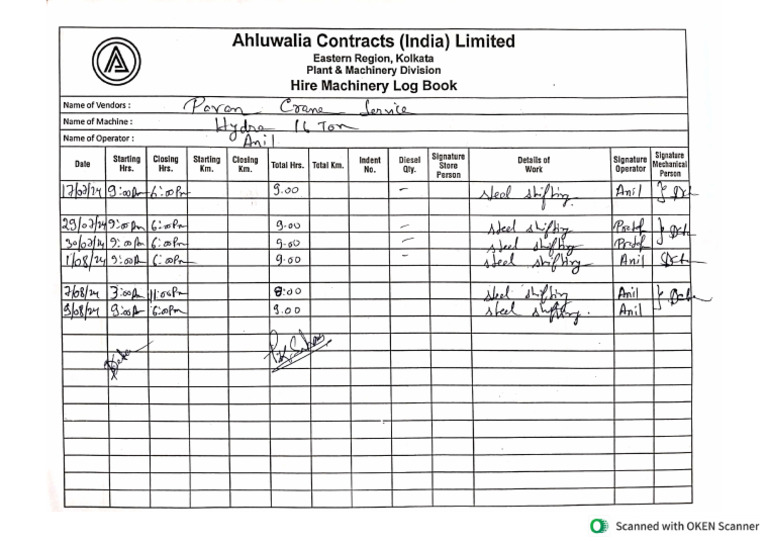 Ahluwalia Contracts (India) Limited
Eastern Region, Kolkata
Plant & Machinery Division
Hire Machinery Log Book
Name of Vendors : Pavan Crane Service
Name of Machine : Hydra 16 Ton
Name of Operator : Anil
Date Starting Hrs. Closing Hrs. Starting Km. Closing Km. Total Hrs. Total Km. Indent No. Diesel Qty. Signature Store Person Details of Work Signature Operator Signature Mechanical Person
17/07/24 9:00Am 6:00Pm 9.00 – steel shifting. Anil
29/07/24 9:00Am 6:00Pm 9.00 – steel shifting
30/07/24 9:00Am 6:00Pm 9.00 – steel shifting
1/08/24 9:00Am 6:00Pm 9.00 – steel shifting Anil
7/08/24 3:00Pm 11:00Pm 8:00 steel shifting Anil
9/08/24 9:00Am 6:00Pm 9.00 steel shifting. Anil
Scanned with OKEN Scanner